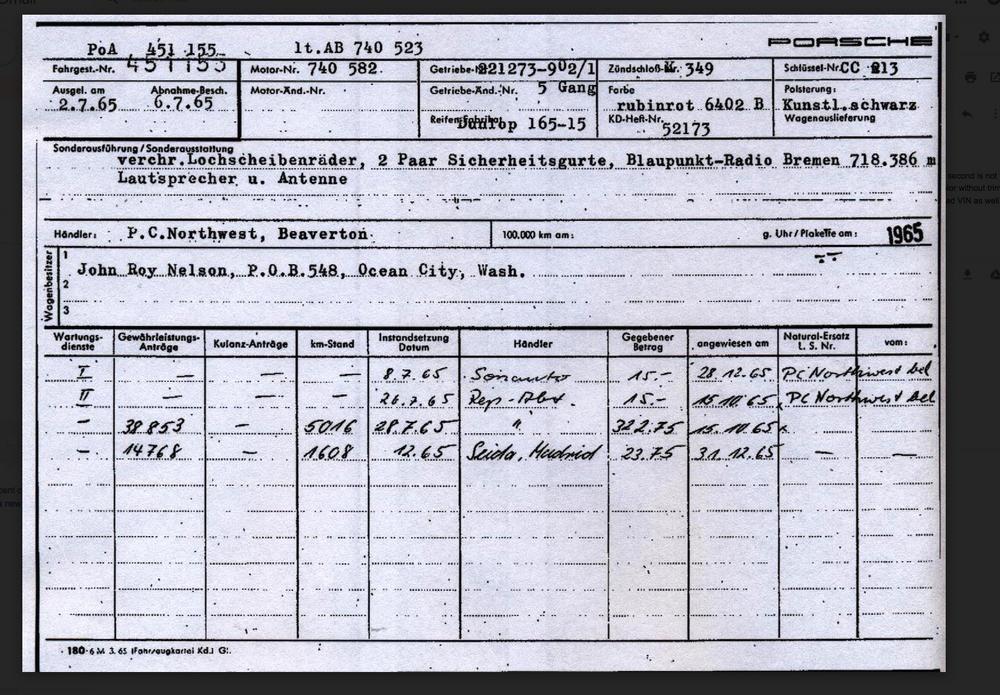 PoA 451 155 lt.AB 740 523 PORSCHE
Fahrgest.-Nr. 451155 Motor-Nr. 740 582 Getriebe-Nr. 221273-902/1 Zündschloß-Nr. 349 Schlüssel-Nr. CC 213
Ausgel. am Abnahme-Besch. Motor-Änd.-Nr. Getriebe-Änd.-Nr. 5 Gang Farbe Polsterung:
2.7.65 6.7.65 rubinrot 6402 B Kunstl.schwarz
Reifenfabrikat Dunlop 165-15 KD-Heft-Nr. 52173 Wagenauslieferung
Sonderausführung / Sonderausstattung
verchr.Lochscheibenräder, 2 Paar Sicherheitsgurte, Blaupunkt-Radio Bremen 718.386 m
Lautsprecher u. Antenne
Händler: P.C.Northwest, Beaverton 100.000 km am: g. Uhr / Plakette am: 1965
Wagenbesitzer
1 John Roy Nelson, P.O.B.548, Ocean City, Wash.
2
3
Wartungs-dienste Gewährleistungs-Anträge Kulanz-Anträge km-Stand Instandsetzung Datum Händler Gegebener Betrag angewiesen am Natural-Ersatz L. S. Nr. vom:
I — — — 8.7.65 Sonauto 15.- 28.12.65 PC Northwest bel
II — — — 26.7.65 Rep-Abt. 15.- 15.10.65 PC Northwest bel
— 38853 — 5016 28.7.65 " 322.75 15.10.65
— 14768 — 1608 12.65 Seida, Madrid 23.75 31.12.65 — —
180·6 M 3. 65 (Fahrzeugkartei Kd.) G.